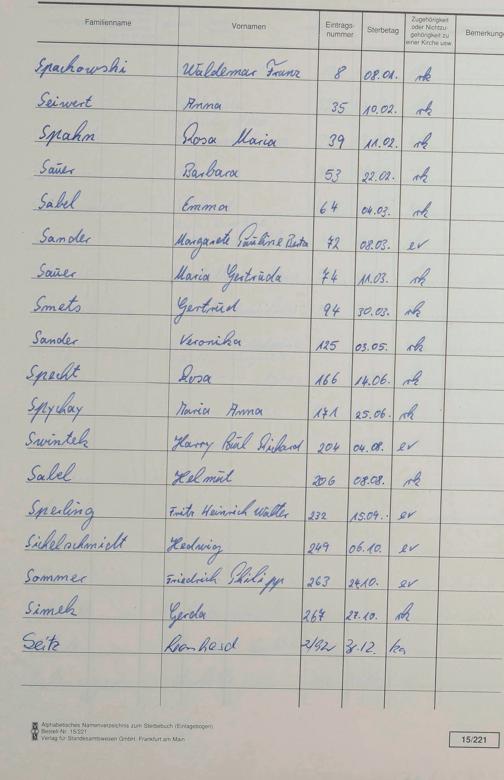 Familienname Vornamen Eintrags-nummer Sterbetag Zugehörigkeit oder Nichtzu-gehörigkeit zu einer Kirche usw. Bemerkung
Spachowski Waldemar Franz 8 08.01. rk
Seiwert Anna 35 10.02. rk
Spahn Rosa Maria 39 11.02. rk
Saŭer Barbara 53 22.02. rk
Sabel Emma 64 04.03. rk
Sander Margarete Paŭline Berta 72 08.03. ev
Saŭer Maria Gertrŭda 74 11.03. rk
Smets Gertrŭd 94 30.03. rk
Sander Veronika 125 03.05. rk
Specht Rosa 166 14.06. rk
Spychay Maria Anna 171 25.06. rk
Swintek Harry Paŭl Richard 204 04.08. ev
Sabel Helmŭt 206 08.08. rk
Sperling Fritz Heinrich Walter 232 15.09. ev
Sichelschmidt Hedwig 249 06.10. ev
Sommer Friedrich Philipp 263 24.10. ev
Simek Gerda 267 27.10. rk
Seitz Leonhard
Alphabetisches Namenverzeichnis zum Sterbebuch (Einlagebogen)
Bestell-Nr. 15/221
Verlag für Standesamtswesen GmbH, Frankfurt am Main
15/221